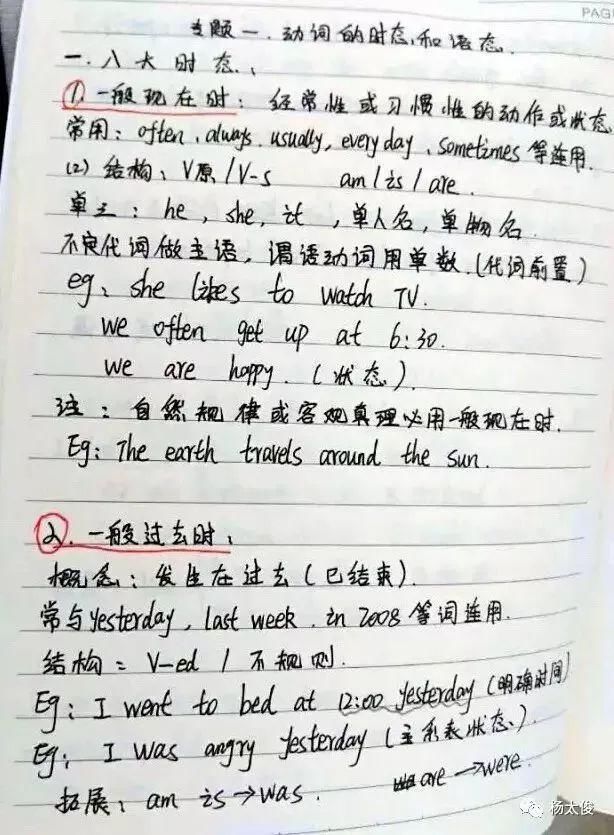 PAG
专题一. 动词的时态和语态.
一. 八大时态、
①. 一般现在时：经常性或习惯性的动作或状态
常用：often、always、usually, every day、sometimes 等连用.
(2) 结构：V原 / V-s am / is / are .
单三：he , she , it , 单人名 , 单物名 .
不定代词做主语，谓语动词用单数.(代词前置)
eg、she likes to watch TV.
we often get up at 6:30.
we are happy. (状态).
注：自然规律或客观真理必用一般现在时.
Eg: The earth travels around the sun.
②. 一般过去时：
概念：发生在过去 (已结束).
常与yesterday , last week . in 2008 等词连用.
结构 = V-ed / 不规则.
Eg: I went to bed at 12:00 yesterday (明确时间)
Eg: I was angry yesterday (主系表状态、).
拓展：am is → was . are → were .
杨太俊